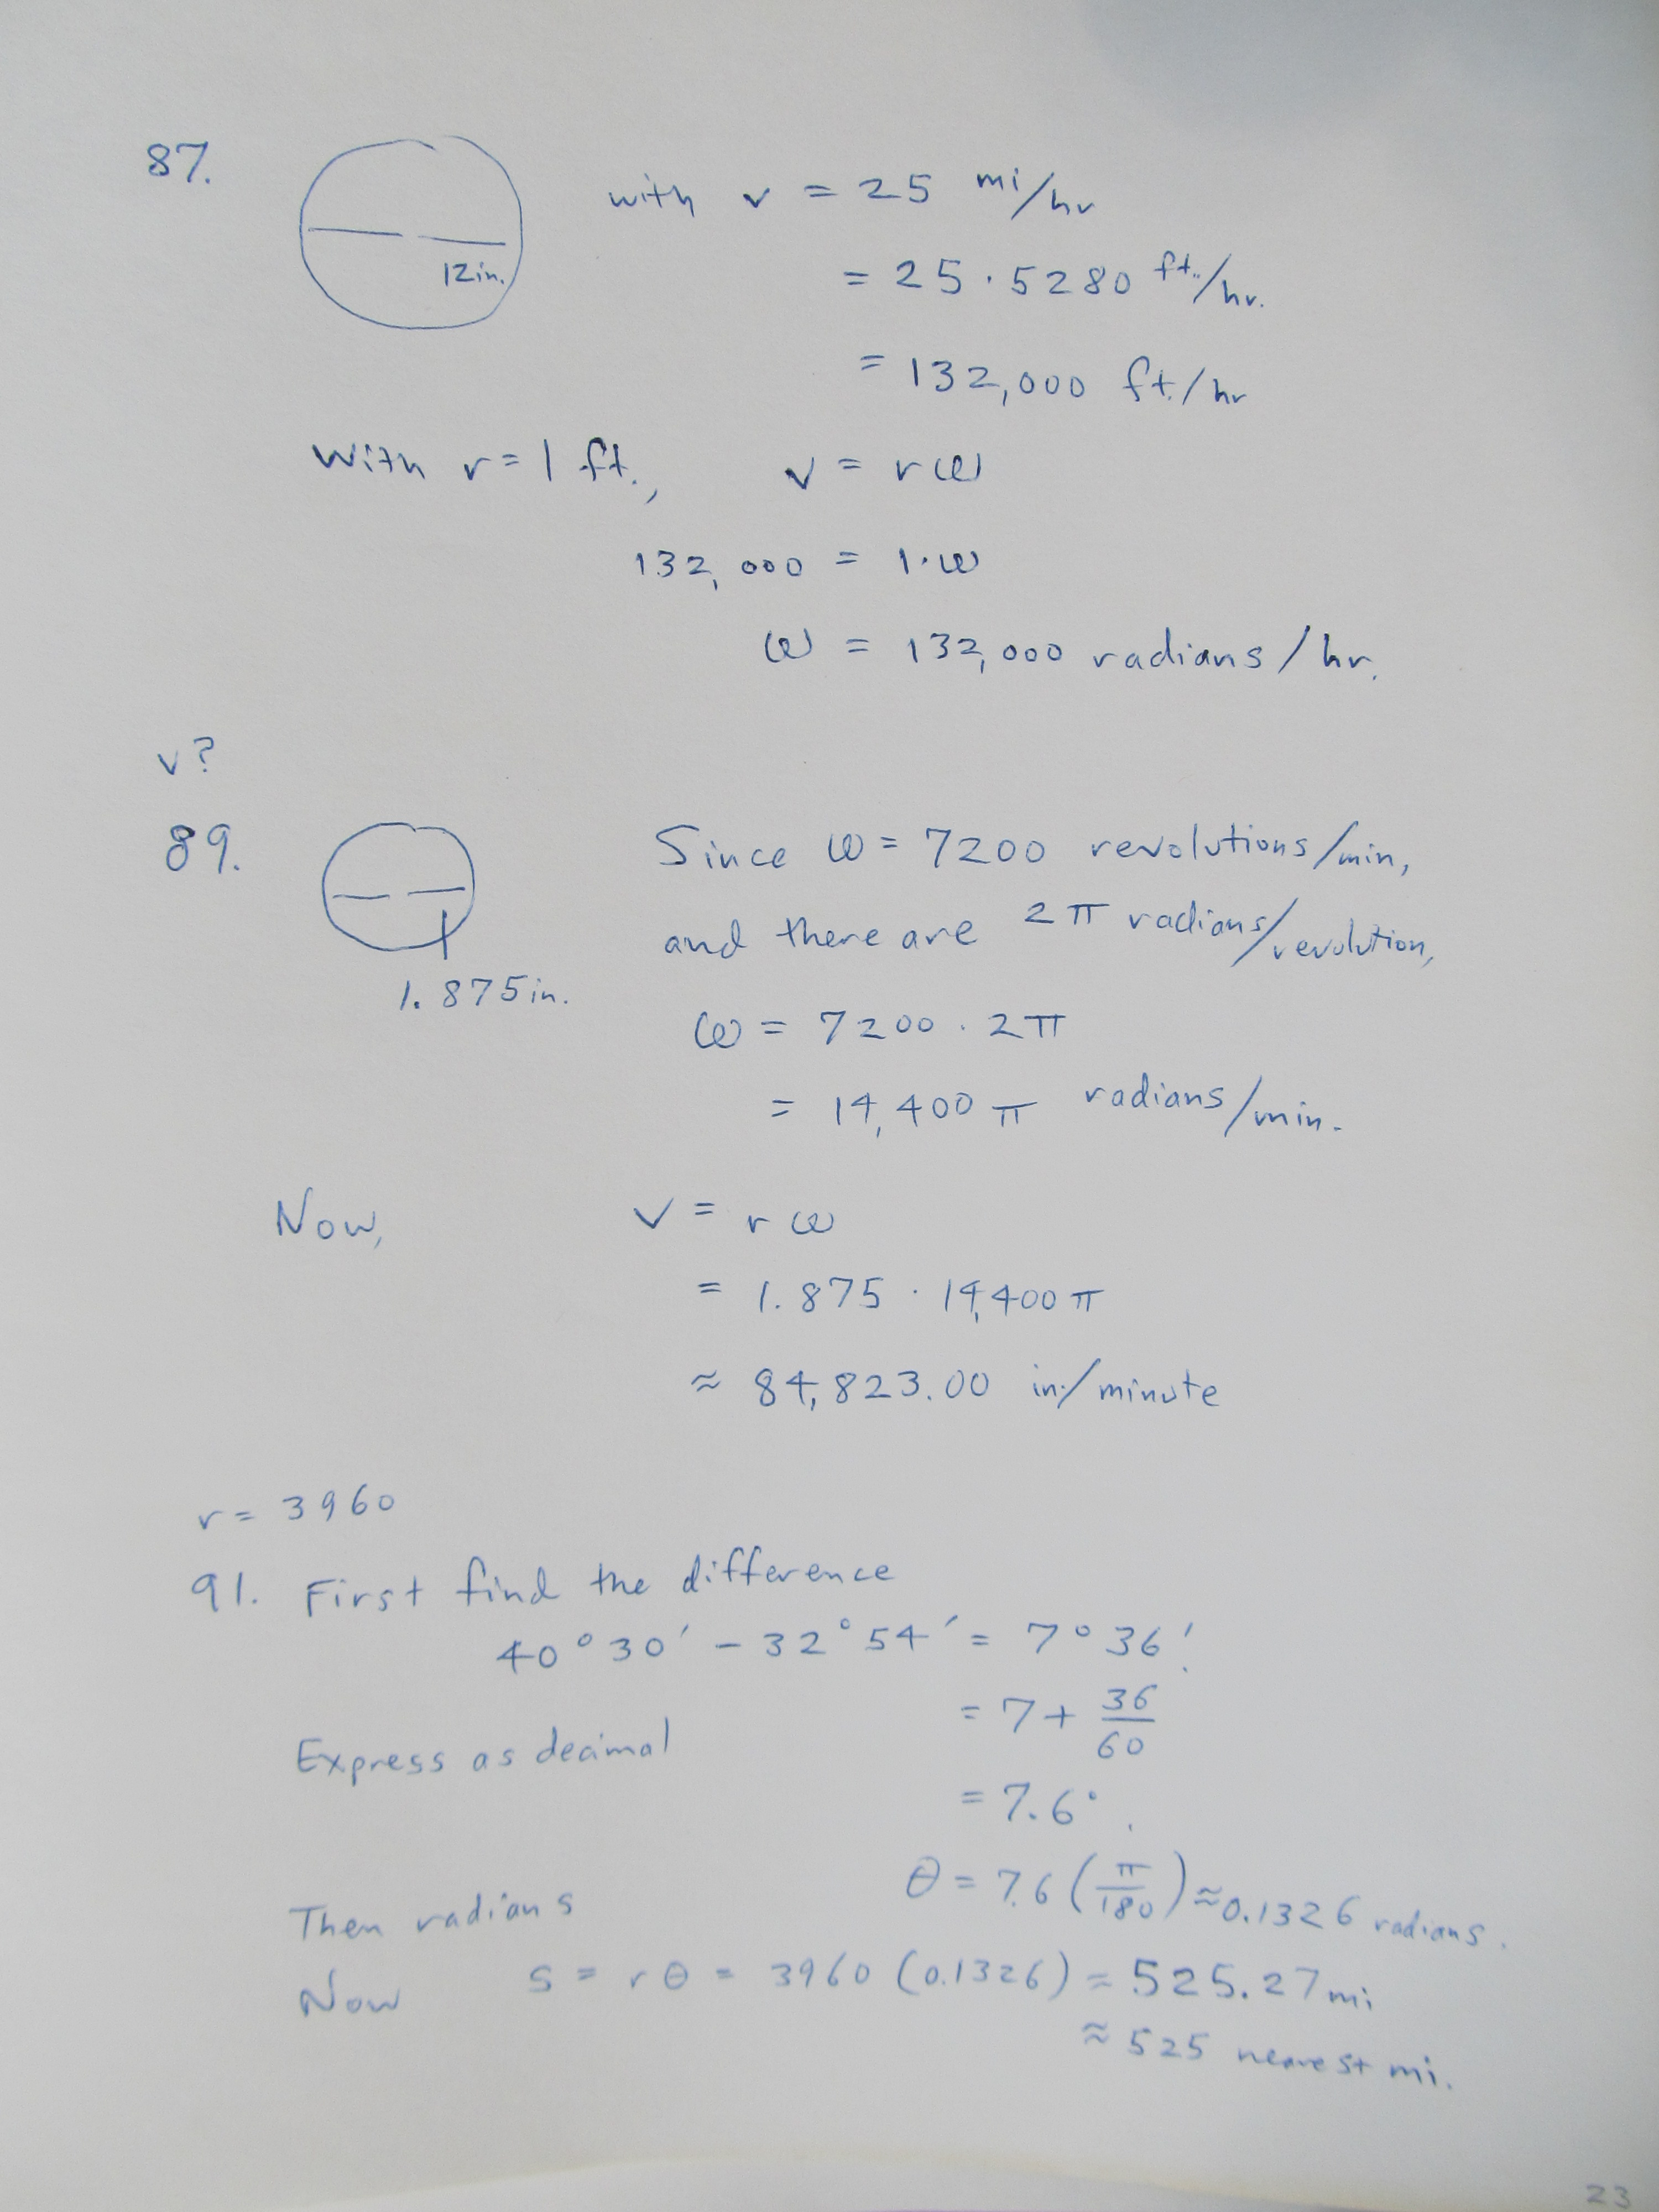 87.
with v = 25 mi/hr
12in.
= 25 · 5280 ft./hr.
= 132,000 ft./hr
With r = 1 ft.,   v = rω
132,000 = 1·ω
ω = 132,000 radians/hr.
v?
89.
Since ω = 7200 revolutions/min,
and there are 2π radians/revolution,
1.875in.
ω = 7200 · 2π
= 14,400π radians/min.
Now,   v = rω
= 1.875 · 14,400π
≈ 84,823.00 in/minute
r = 3960
91. First find the difference
40°30′ − 32°54′ = 7°36′.
= 7 + 36/60
Express as decimal
= 7.6°.
θ = 7.6 (π/180) ≈ 0.1326 radians.
Then radians
s = rθ = 3960 (0.1326) = 525.27 mi
Now
≈ 525 nearest mi.
23